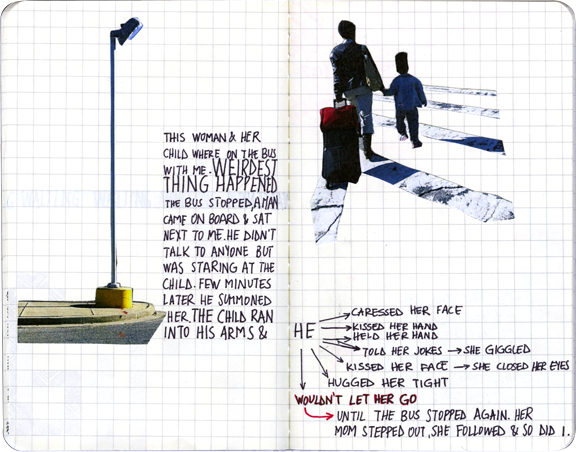 THIS WOMAN & HER
CHILD WHERE ON THE BUS
WITH ME. WEIRDEST
THING HAPPENED
THE BUS STOPPED, A MAN
CAME ON BOARD & SAT
NEXT TO ME. HE DIDN'T
TALK TO ANYONE BUT
WAS STARING AT THE
CHILD. FEW MINUTES
LATER HE SUMMONED
HER. THE CHILD RAN
INTO HIS ARMS &
HE
CARESSED HER FACE
KISSED HER HAND
HELD HER HAND
TOLD HER JOKES → SHE GIGGLED
KISSED HER FACE → SHE CLOSED HER EYES
HUGGED HER TIGHT
WOULDN'T LET HER GO
UNTIL THE BUS STOPPED AGAIN. HER
MOM STEPPED OUT, SHE FOLLOWED & SO DID I.